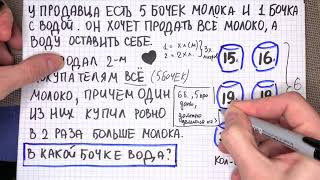 У ПРОДАВЦА ЕСТЬ 5 БОЧЕК МОЛОКА И 1 БОЧКА
С ВОДОЙ. ОН ХОЧЕТ ПРОДАТЬ ВСЁ МОЛОКО, А
ВОДУ ОСТАВИТЬ СЕБЕ.
ПРОДАЛ 2-М
ПОКУПАТЕЛЯМ ВСЁ (5 БОЧЕК)
МОЛОКО, ПРИЧЕМ ОДИН
ИЗ НИХ КУПИЛ РОВНО
В 2 РАЗА БОЛЬШЕ МОЛОКА.
В КАКОЙ БОЧКЕ ВОДА?
1 = X Л (М)
2 = 2 X Л.
3X
6 Б., 5 про
15.
16.
19.
6
КОЛ-